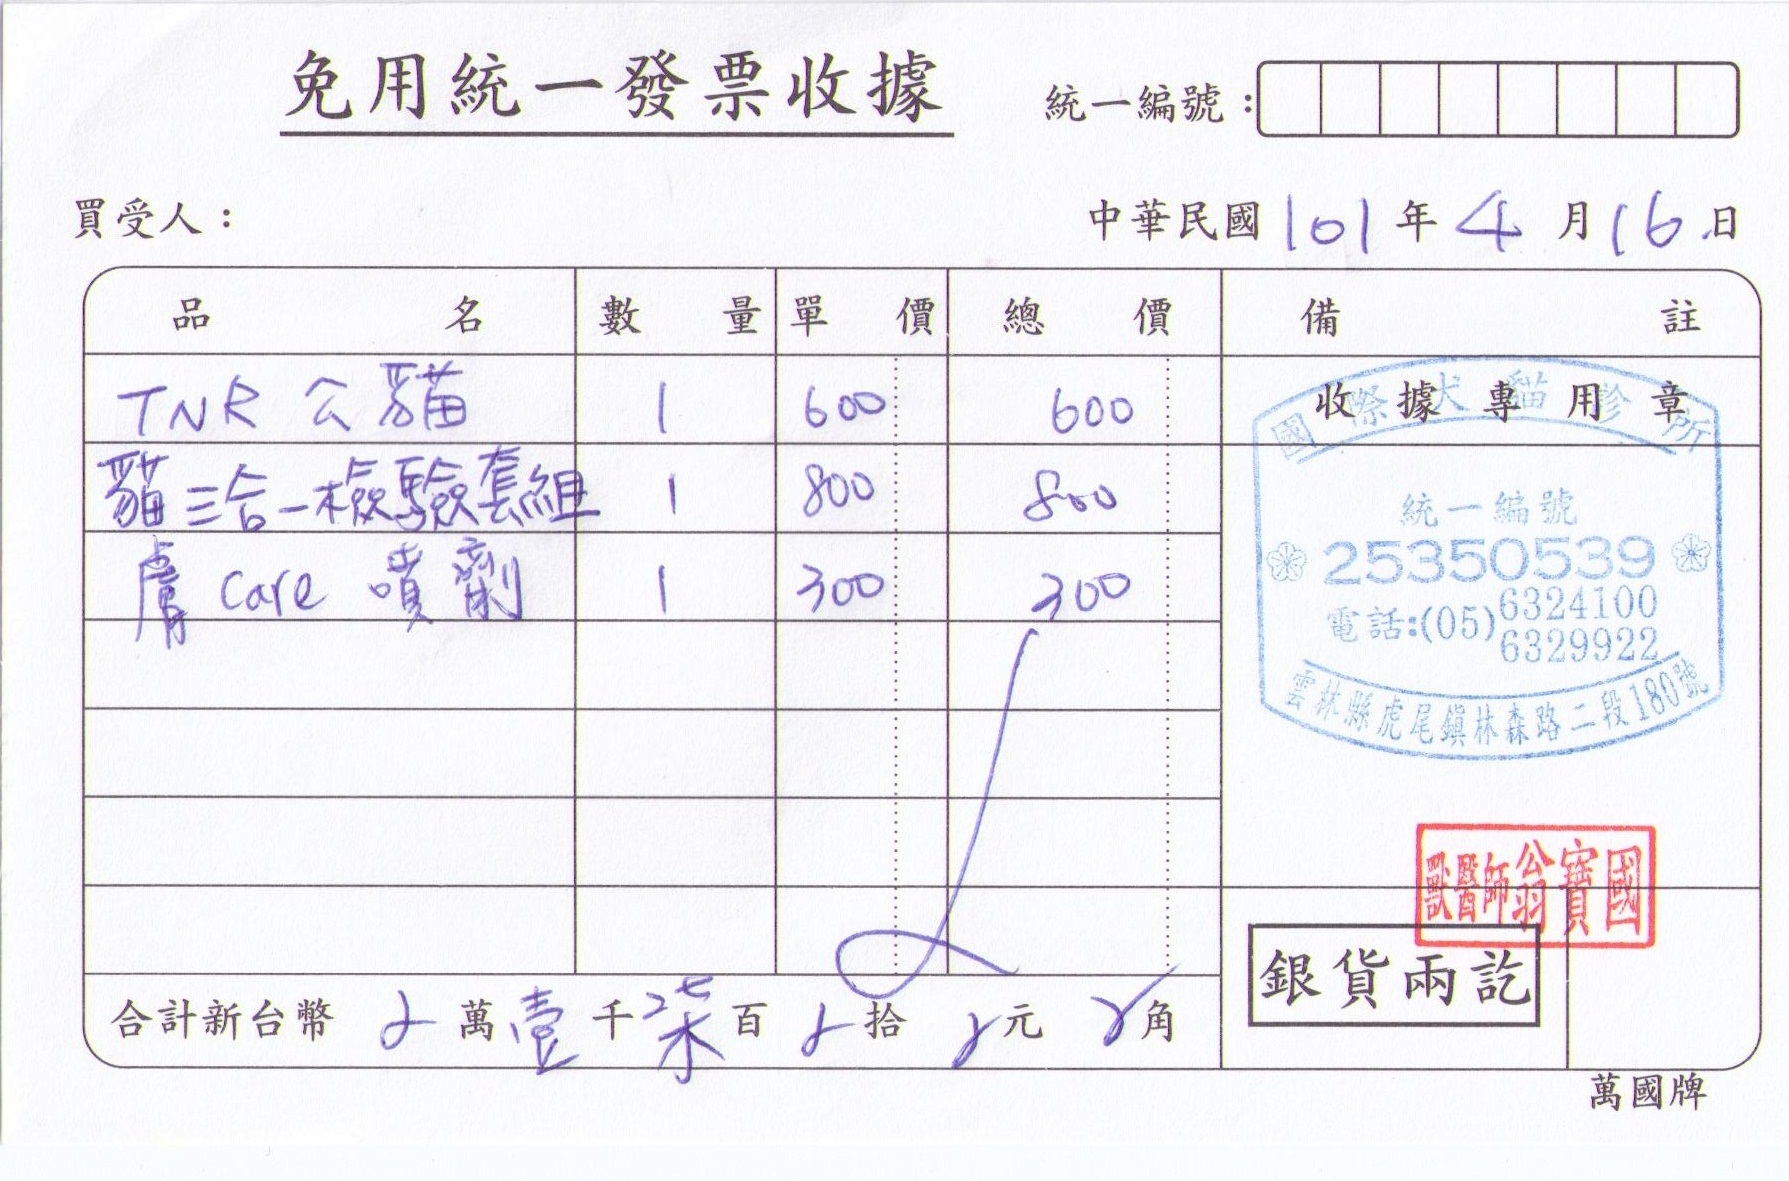 免用統一發票收據
統一編號：
買受人：
中華民國 101 年 4 月 16 日
品名 數量 單價 總價 備註
TNR 公貓 1 600 600
收據專用章
貓三合一檢驗套組 1 800 800
膚 care 噴劑 1 300 300
國際犬貓診所
統一編號
25350539
電話:(05)6324100
6329922
雲林縣虎尾鎮林森路二段180號
獸醫師翁寶國
銀貨兩訖
合計新台幣 萬 壹 千 柒 百 拾 元 角
萬國牌